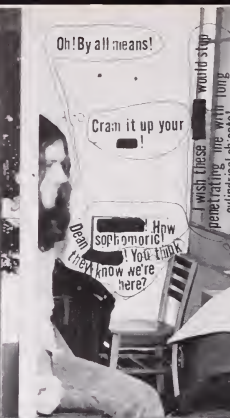 Oh! By all means!
Cram it up your
!
! How
sophomoric
Dean ! You think
they know we're
here?
I wish these would stop
penetrating me with long